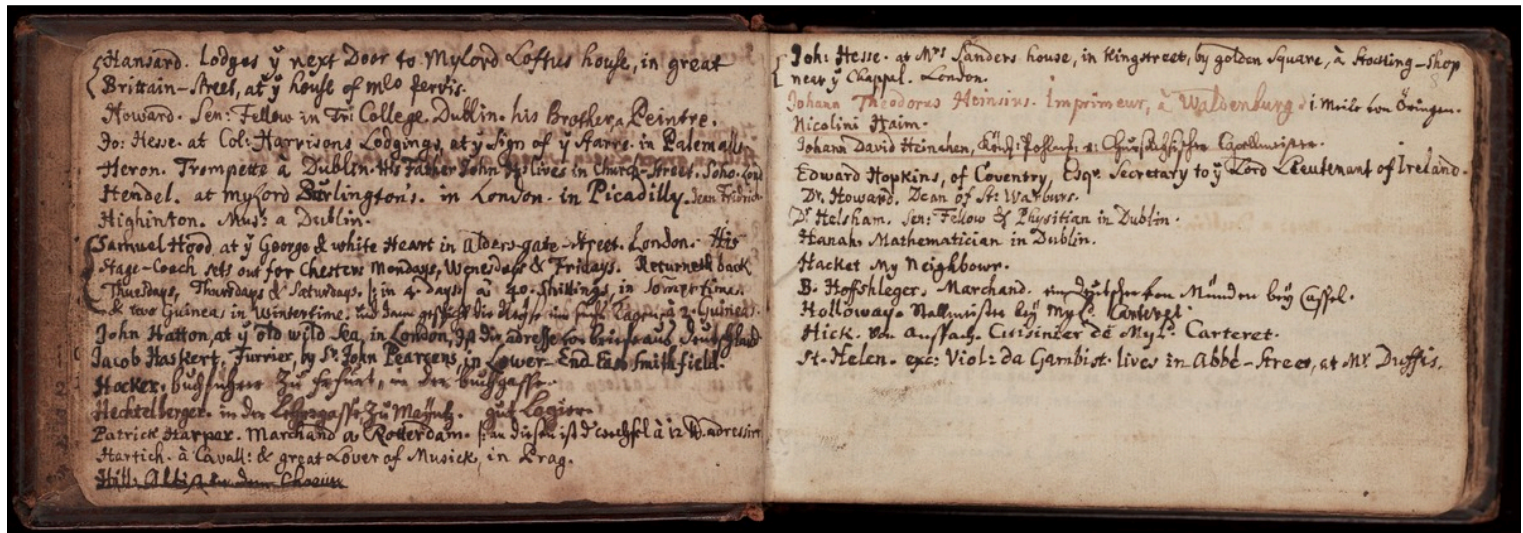 Hansard. Lodges ÿ next Door to Mylord Loftus house, in great
Brittain-Street, at ÿ house of
Howard. Sen: Fellow in Tri: College. Dublin. his Brother, a Peintre.
Jo: Hesse. at Col: Harrisons Lodgings, at ÿ Sign of ÿ Starre. in Palemalle.
Heron. Trompette a Dublin. His Father John lives in Church-Street. Soho. Lond
Hendel. at mylord Burlington's. in London. in Picadilly. Jean Fridric
Highinton. Mus: a Dublin.
Samuel Hood at ÿ George & white Heart in Alders-gate-Street. London. His
Stage-Coach sets out for Chester Mondays, Wenesdays & Fridays. Returneth back
Thuesdays, Thursdays & Saturdays. in 4 days a 40. Shillings, in
& two Guineas in Wintertime. à 2. Guineas.
John Hatton, at ÿ old wild Sea, in London,
Jacob Haskert, Furrier, by St. John Pearcens, in Lower-End East Smithfield.
Hocker. buchführer zu Erfurt, in der buchgasse.
Hechtelberger. in der zu Mayntz. gut Lagier.
Patrick Harper. Marchand a Rotterdam. an diesen ist à 12
Hartich. à Cavall: & great Lover of Musick, in Prag.
Joh: Hesse. at Mrs Sanders house, in Kingstreet, by golden Square, à Stocking-Shop
near ÿ Chappal. London.
Johann Theodorus Heinsius. Imprimeur, à Waldenburg 1. Meile von Öringen.
Nicolini Haim.
Johann David Heinchen, Capellmeister.
Edward Hopkins, of Coventry, Esqr. Secretary to ÿ Lord Lieutenant of Ireland.
Dr. Howard, Dean of St: Warburs.
Dr Helsham. Sen: Fellow & Physitian in Dublin.
Hanah. Mathematician in Dublin.
Hacket My Neighbour.
B. Hoffshleger. Marchand. ein deutscher von Münden bey Cassel.
Holloway. bey Myld. Carteret.
Hick. von Anspach. Cuisinier de Myld. Carteret.
St. Helen. exc: Viol: da Gambist. lives in Abbé-Street, at Mr. Duffis.